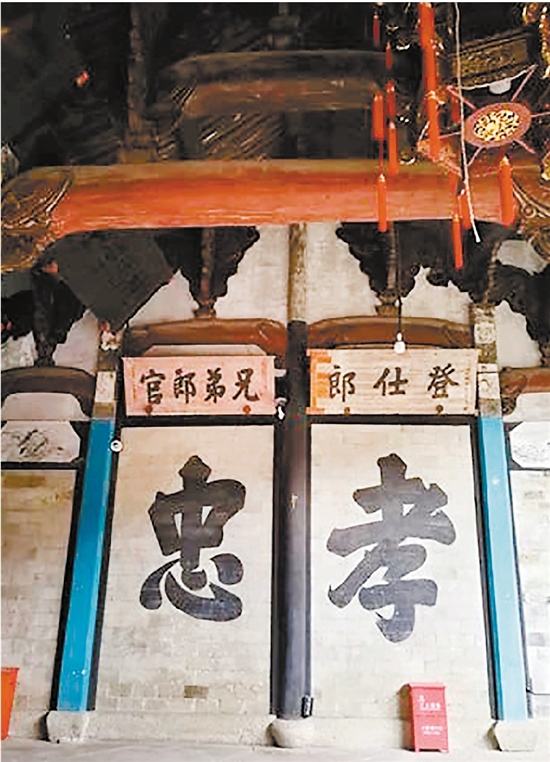 登仕郎
兄弟郎官
孝
忠